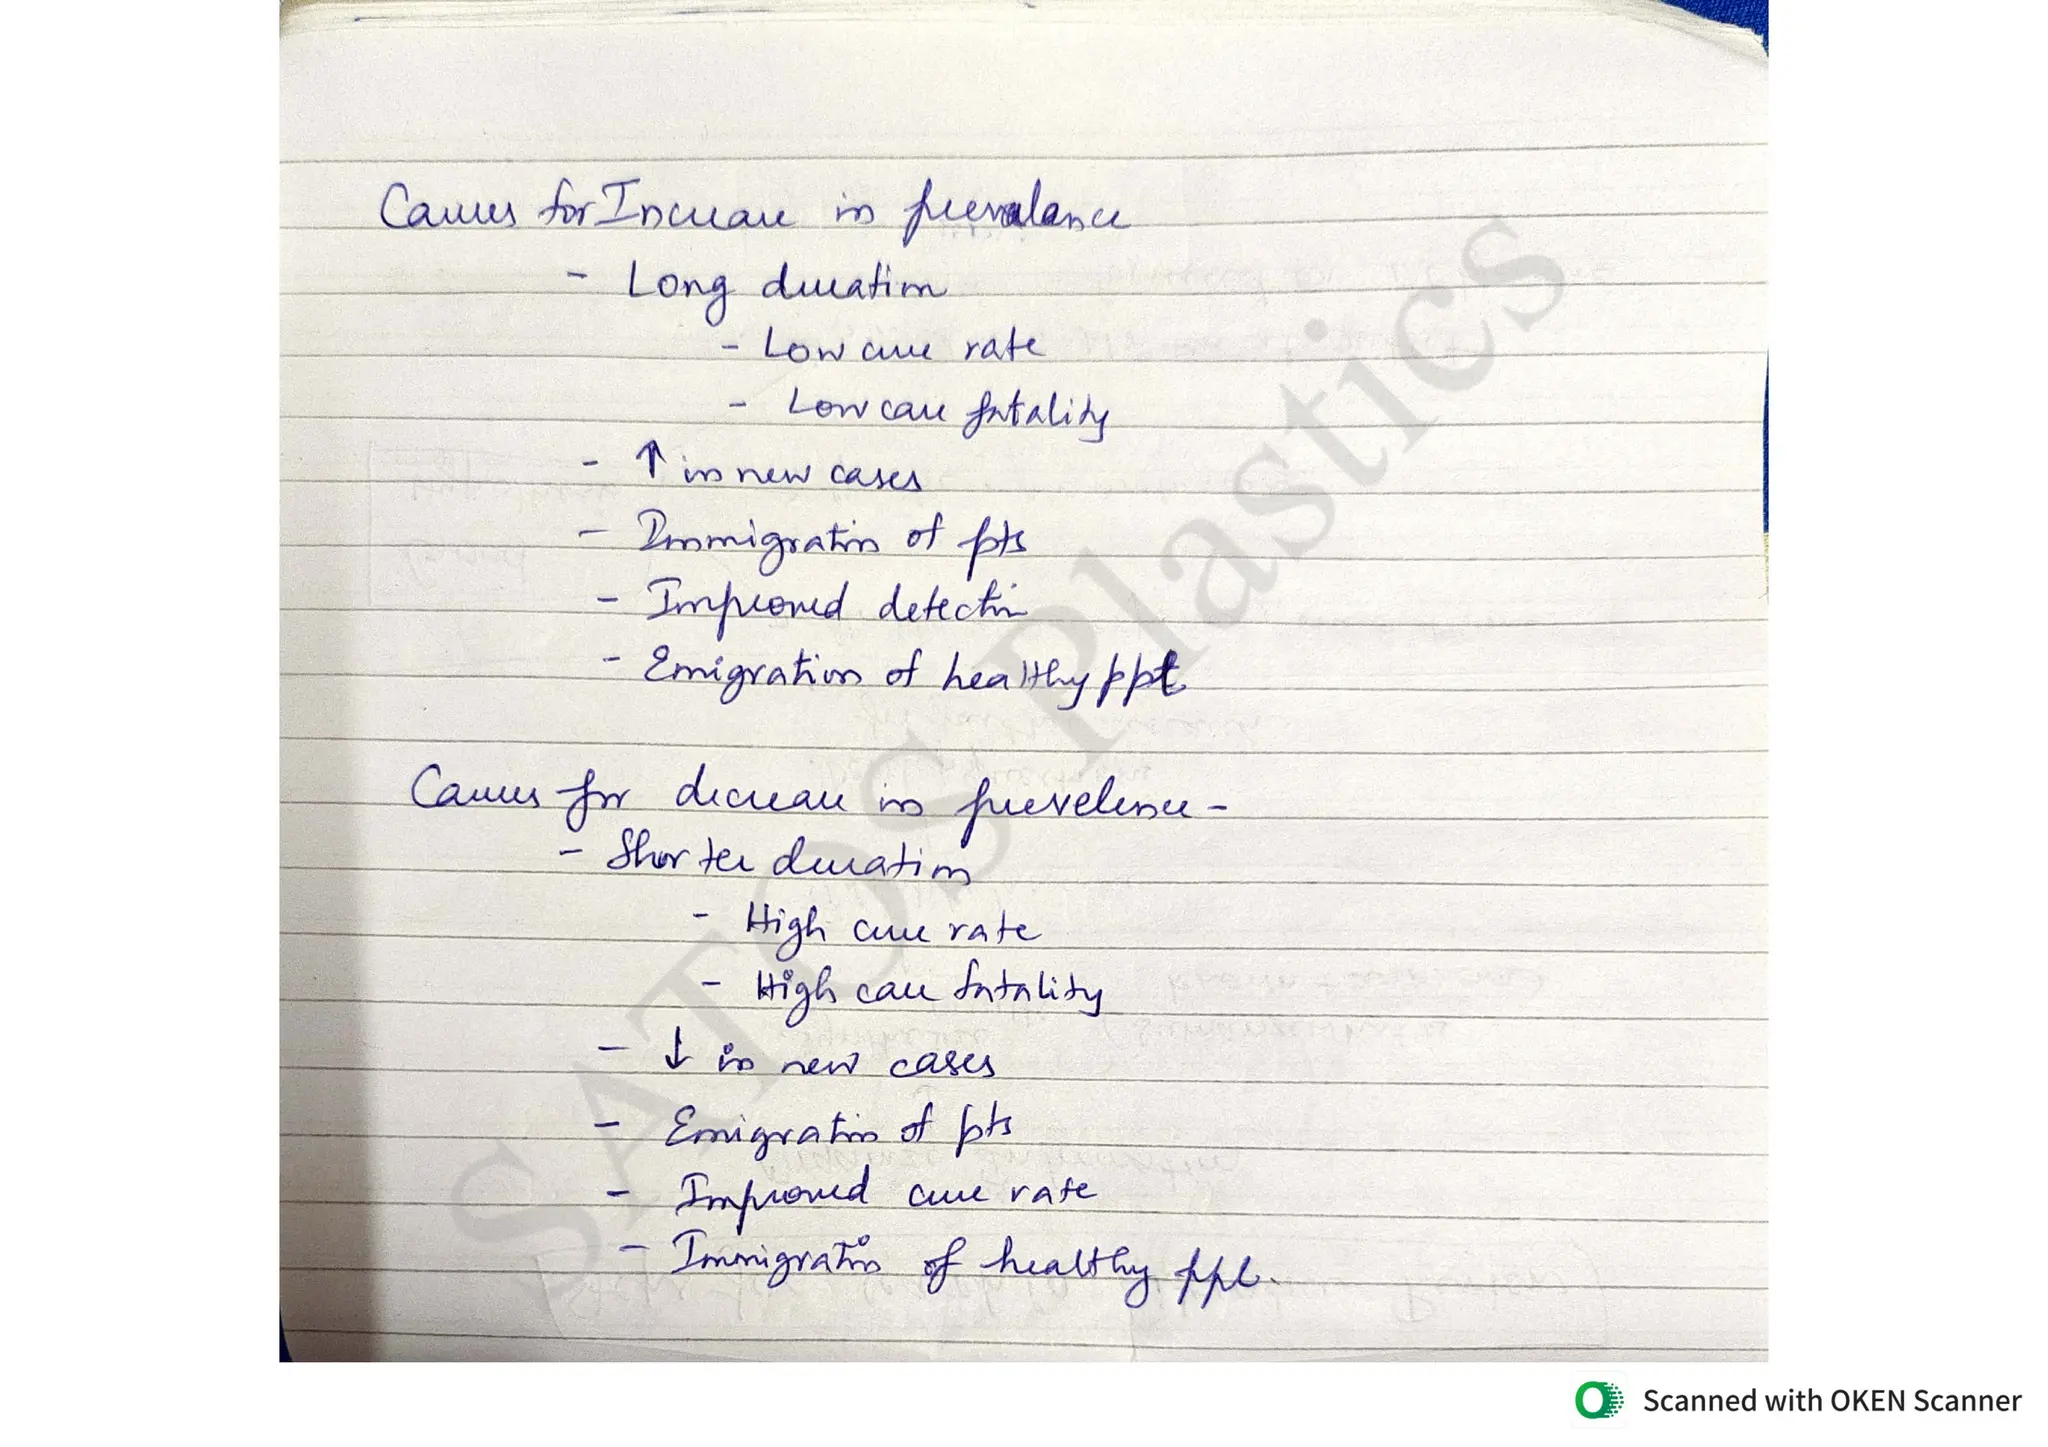 Causes for Increase in prevalance
- Long duration
- Low cure rate
- Low case fatality
- ↑ in new cases
- Immigration of pts
- Improved detection
- Emigration of healthy ppl
Causes for decrease in prevelence -
- Shorter duration
- High cure rate
- High case fatality
- ↓ in new cases
- Emigration of pts
- Improved cure rate
- Immigration of healthy ppl.
SATOS Plastics
Scanned with OKEN Scanner